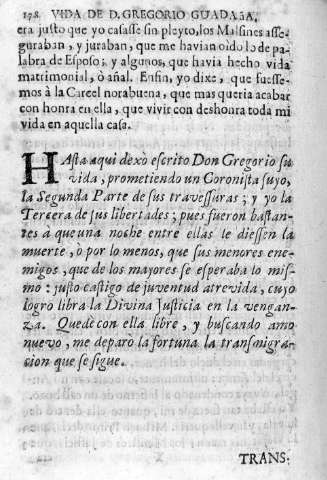 198 VIDA DE D. GREGORIO GUADAÑA,
era justo que yo casasse sin pleyto, los Malsines asse-
guraban, y juraban, que me havian oido lo de pa-
labra de Esposo; y algunos, que havia hecho vida
matrimonial, ò añal. Enfin, yo dixe, que fuesse-
mos à la Carcel norabuena, que mas queria acabar
con honra en ella, que vivir con deshonra toda mi
vida en aquella casa.
HAsta aqui dexò escrito Don Gregorio su
vida, prometiendo un Coronista suyo,
la Segunda Parte de sus travessuras; y yo la
Tercera de sus libertades; pues fueron bastan-
tes à que una noche entre ellas le diessen la
muerte, ò por lo menos, que sus menores ene-
migos, que de los mayores se esperaba lo mis-
mo: justo castigo de juventud atrevida, cuyo
logro libra la Divina Justicia en la vengan-
za. Quedè con ella libre, y buscando amo
nuevo, me deparò la fortuna la transmigra-
cion que se sigue.
TRANS-